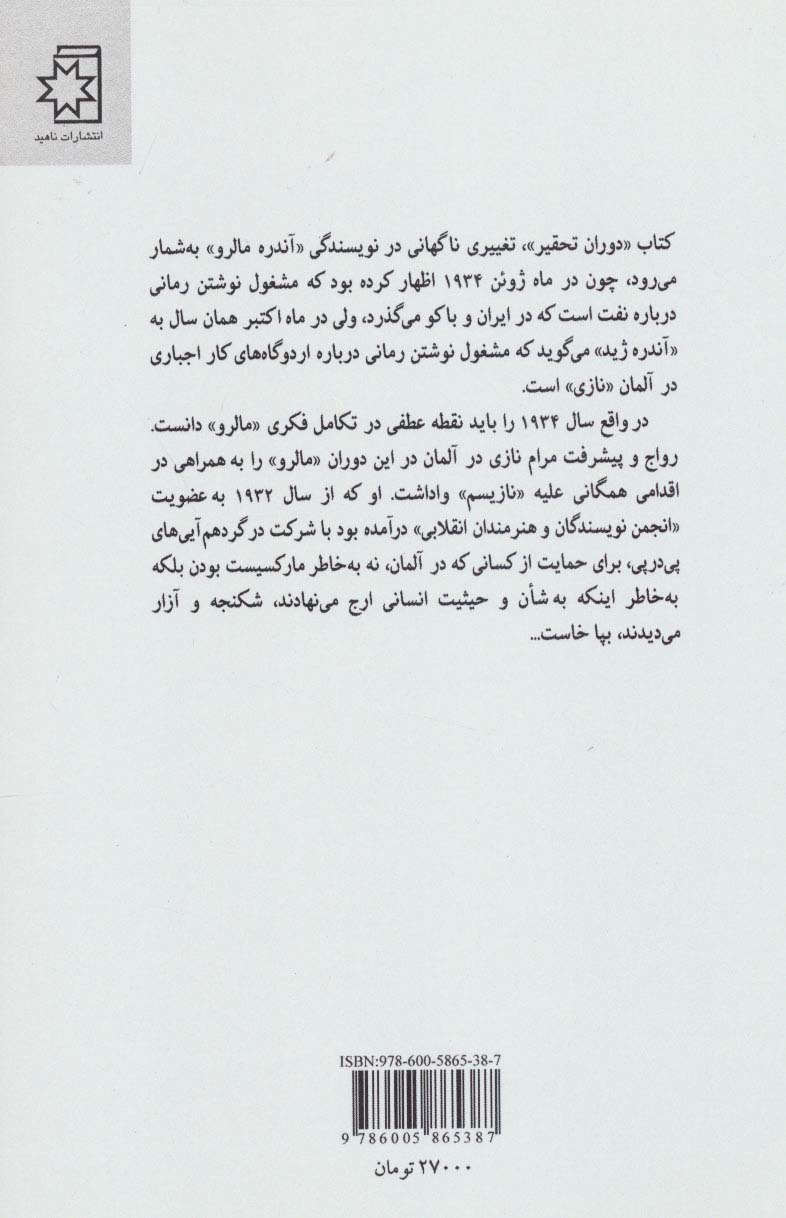 انتشارات ناهید
کتاب «دوران تحقیر»، تغییری ناگهانی در نویسندگی «آندره مالرو» به‌شمار
می‌رود، چون در ماه ژوئن ۱۹۳۴ اظهار کرده بود که مشغول نوشتن رمانی
درباره نفت است که در ایران و باکو می‌گذرد، ولی در ماه اکتبر همان سال به
«آندره ژید» می‌گوید که مشغول نوشتن رمانی درباره اردوگاه‌های کار اجباری
در آلمان «نازی» است.
در واقع سال ۱۹۳۴ را باید نقطه عطفی در تکامل فکری «مالرو» دانست.
رواج و پیشرفت مرام نازی در آلمان در این دوران «مالرو» را به همراهی در
اقدامی همگانی علیه «نازیسم» واداشت. او که از سال ۱۹۳۲ به عضویت
«انجمن نویسندگان و هنرمندان انقلابی» درآمده بود با شرکت در گردهم‌آیی‌های
پی‌درپی، برای حمایت از کسانی که در آلمان، نه به‌خاطر مارکسیست بودن بلکه
به‌خاطر اینکه به شأن و حیثیت انسانی ارج می‌نهادند، شکنجه و آزار
می‌دیدند، بپا خاست...
ISBN:978-600-5865-38-7
9 786005 865387
۲۷۰۰۰ تومان